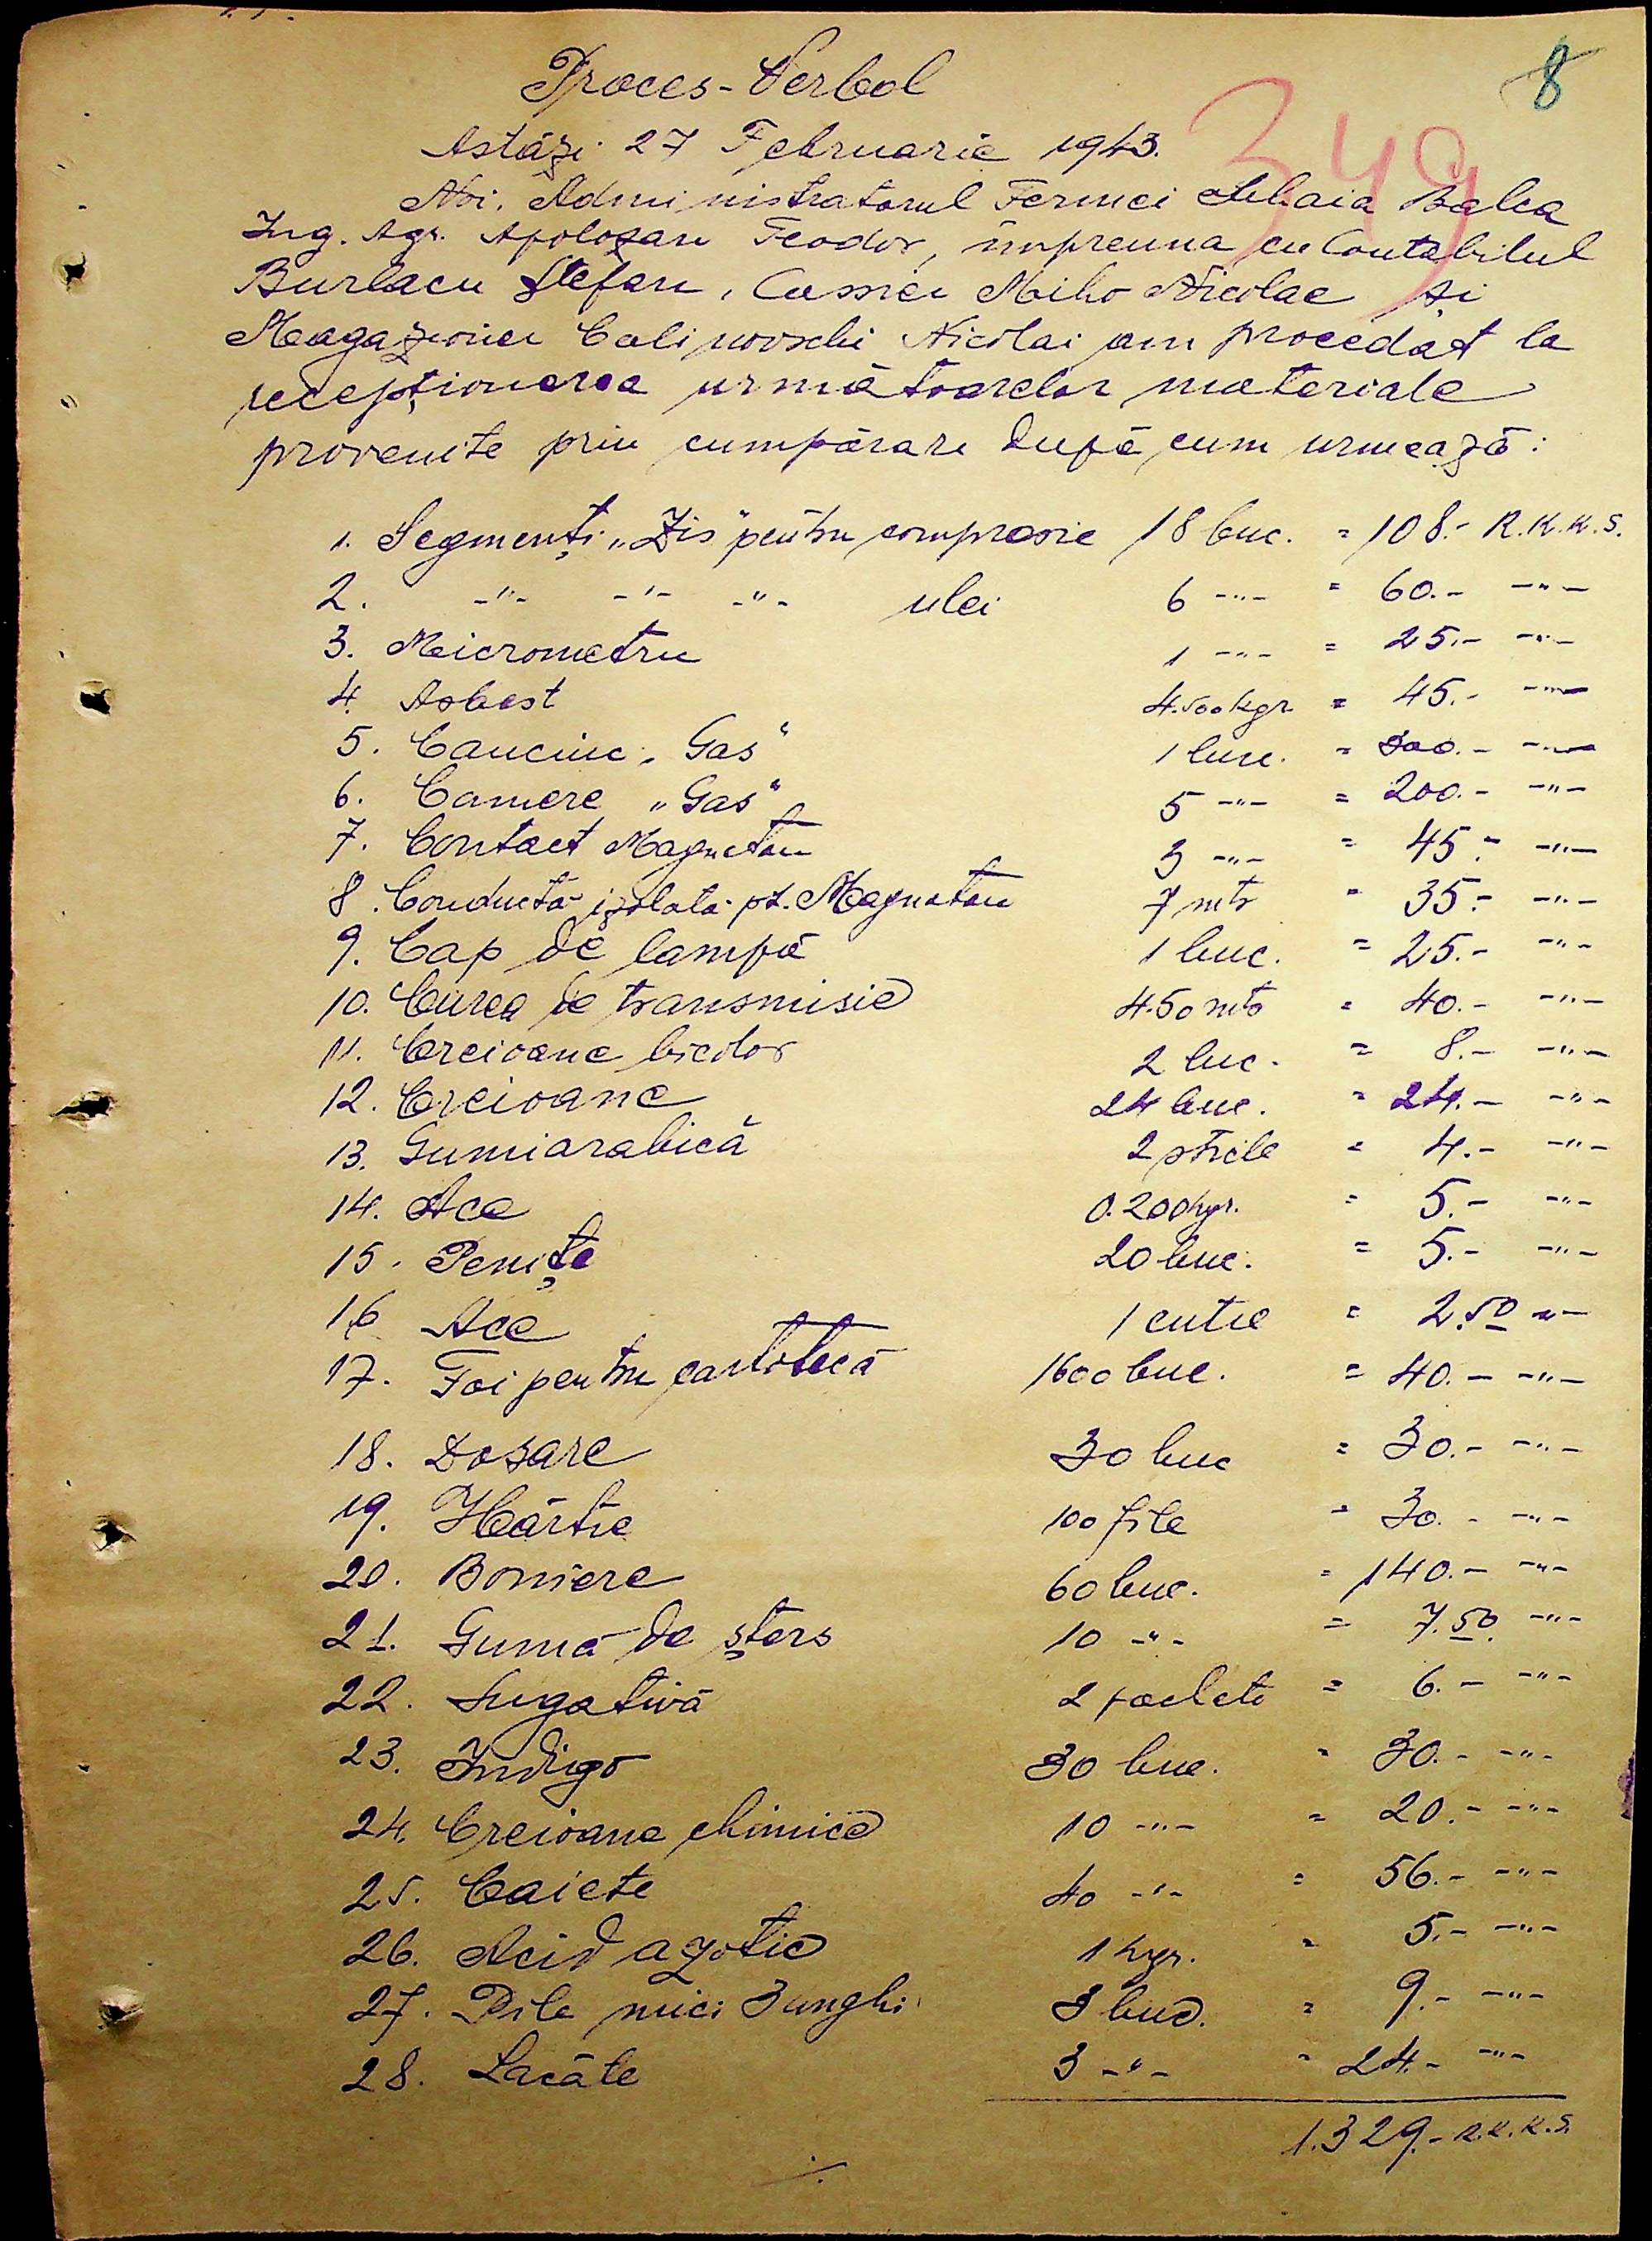 8
349
Proces-Verbal
Astăzi 27 Februarie 1943.
Noi, Administratorul Fermei Balca
Ing. Agr. Apolozan Teodor, împreuna cu Contabilul
Burlacu Ștefan, Casier Miho Nicolae și
Magazioner Calinovschi Nicolai am procedat la
recepționarea următoarelor materiale
provenite prin cumpărare după cum urmează:
1. Segmenți „Zis" pentru compresie 18 buc. = 108.- R.K.K.S.
2. -"- -"- -"- ulei 6 -"- = 60.- -"-
3. Micrometru 1 -"- = 25.- -"-
4. Asbest 4.500 kgr = 45.- -"-
5. Cauciuc „Gas" 1 buc. = 300.- -"-
6. Camere „Gas" 5 -"- = 200.- -"-
7. Contact Magnetou 3 -"- = 45.- -"-
8. Conductă izolată pt. Magnetou 7 mtr = 35.- -"-
9. Cap de lampă 1 buc. = 25.- -"-
10. Curea de transmisie 4.50 mtr = 40.- -"-
11. Creioane bicolor 2 buc. = 8.- -"-
12. Creioane 24 buc. = 24.- -"-
13. Gumiarabică 2 sticle = 4.- -"-
14. Ace 0.200 kgr. = 5.- -"-
15. Penițe 20 buc. = 5.- -"-
16 Ace 1 cutie = 2.50 -"-
17. Foi pentru cartotecă 1600 buc. = 40.- -"-
18. Dosare 30 buc = 30.- -"-
19. Hârtie 100 file = 30.- -"-
20. Boniere 60 buc. = 140.- -"-
21. Gumă de șters 10 -"- = 7.50. -"-
22. Sugativă 2 pachete = 6.- -"-
23. Indigo 30 buc. = 30.- -"-
24. Creioane chimice 10 -"- = 20.- -"-
25. Caiete 40 -"- = 56.- -"-
26. Acid azotic 1 kgr. = 5.- -"-
27. Pile mici 3 unghi 3 buc. = 9.- -"-
28. Lacăte 3 -"- = 24.- -"-
1.329.- R.K.K.S.
./.